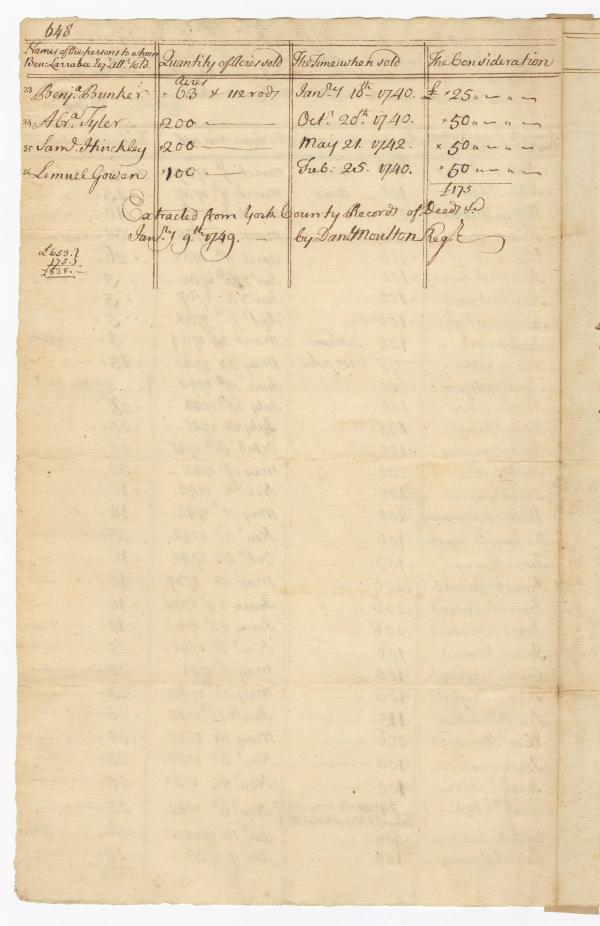 648
Names of the persons to whom Benj: Larrabee Esqr. attr. sold. Quantity of Acres sold The Time when sold The Consideration
33 Benja. Bunker Acres 63 & 112 rods Janry. 18th. 1740. £ 25 " — " — "
34 Abra. Tyler 200 Octr. 20th. 1740. 50 " — " — "
35 Saml. Hinckley 200 May 21. 1742. 50 " — " — "
36 Lemuel Gowen 100 Feb: 25. 1740. 50 " — " — "
£175
Extracted from York County Records of Deeds &c
Janry. 9th. 1749. — by Danl. Moulton Regr.
£653.
175.
£828. —